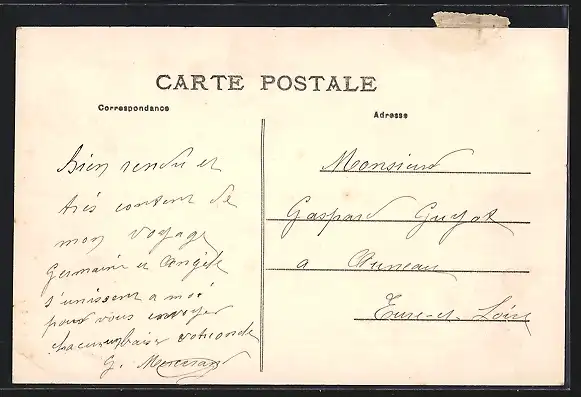 CARTE POSTALE
Correspondance
Adresse
Bien rendu et
très content de
mon voyage
Germaine et Angèle
s'unissent a moi
pour vous envoyer
chacun baiser votre oncle
G.
Monsieur
Gaspard Guyot
a Auneau
Eure-et-Loir